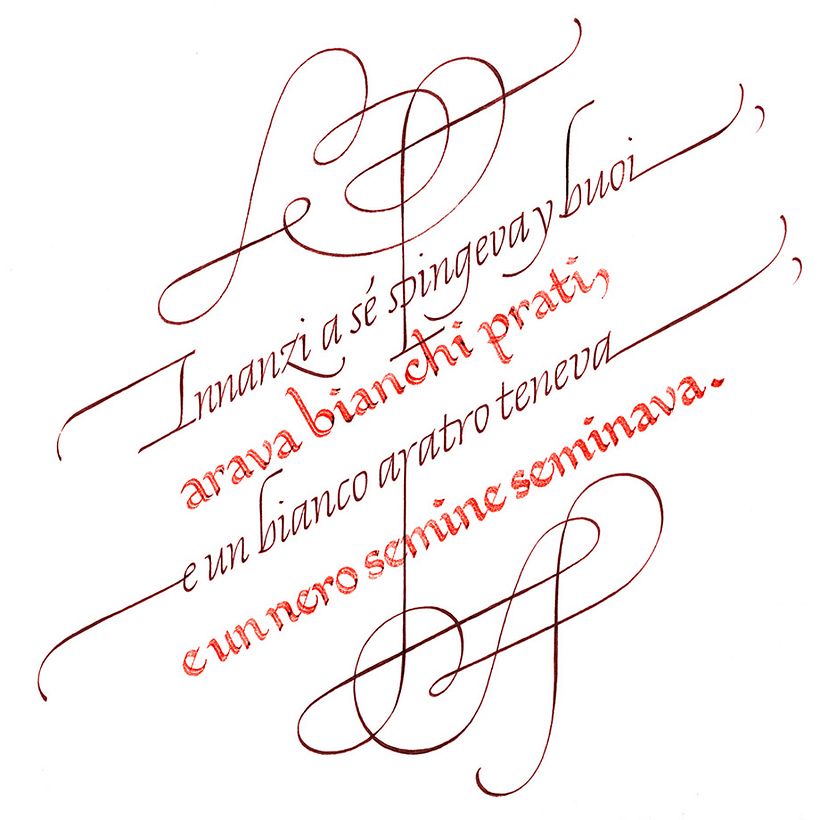 Innanzi a sé spingeva y buoi,
arava bianchi prati,
e un bianco aratro teneva,
e un nero semine seminava.